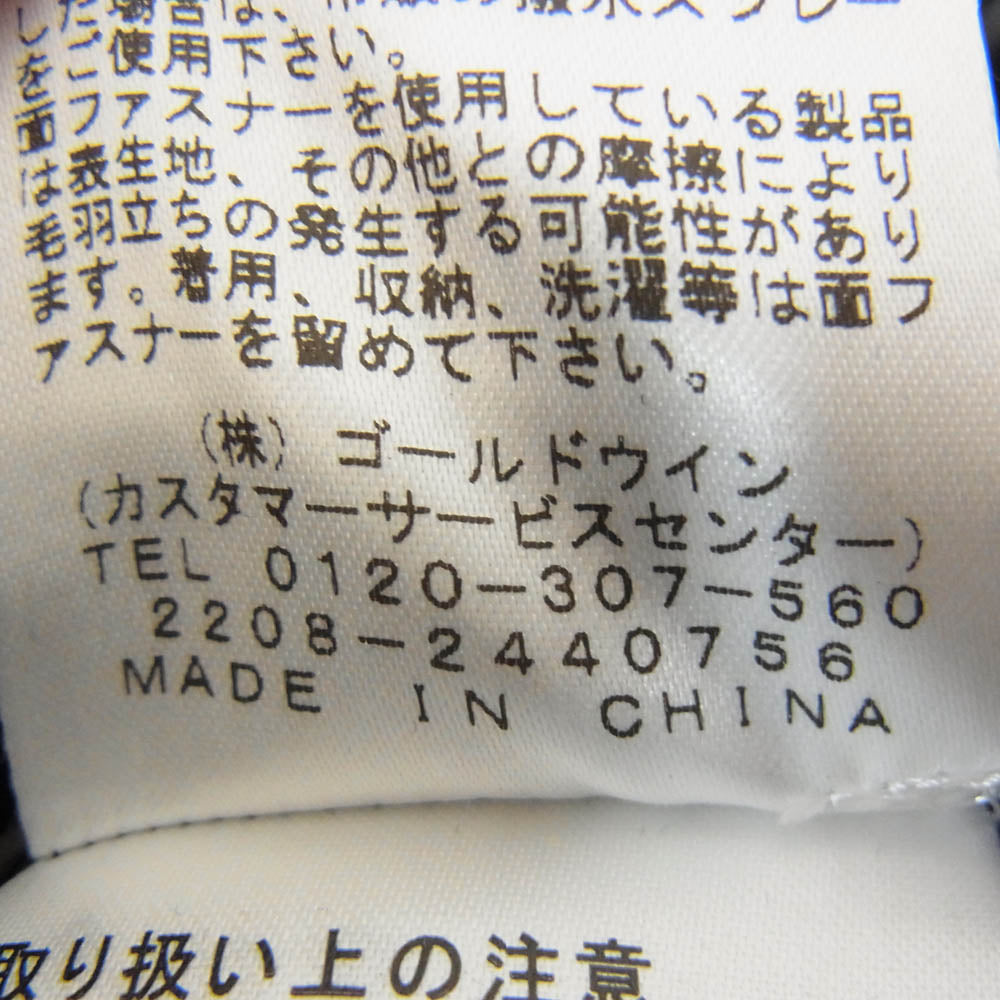 しご使用下さい。
を面ファスナーを使用している製品
は表生地、その他との摩擦により
毛羽立ちの発生する可能性があり
ます。着用、収納、洗濯等は面フ
ァスナーを留めて下さい。
(株) ゴールドウイン
(カスタマーサービスセンター)
TEL 0120-307-560
2208-2440756
MADE IN CHINA
取り扱い上の注意